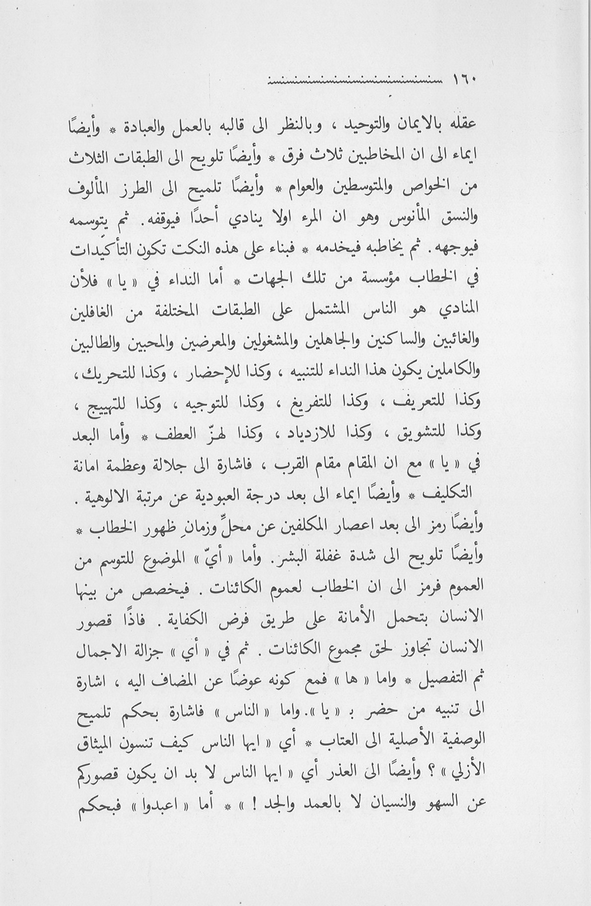 ١٦٠
عقله بالايمان والتوحيد ، وبالنظر الى قالبه بالعمل والعبادة * وأيضًا
ايماء الى ان المخاطبين ثلاث فرق * وأيضًا تلويح الى الطبقات الثلاث
من الخواص والمتوسطين والعوام * وأيضًا تلميح الى الطرز المألوف
والنسق المأنوس وهو ان المرء اولا ينادي أحدًا فيوقفه . ثم يتوسمه
فيوجهه . ثم يخاطبه فيخدمه * فبناء على هذه النكت تكون التأكيدات
في الخطاب مؤسسة من تلك الجهات * أما النداء في « يا » فلأن
المنادي هو الناس المشتمل على الطبقات المختلفة من الغافلين
والغائبين والساكنين والجاهلين والمشغولين والمعرضين والمحبين والطالبين
والكاملين يكون هذا النداء للتنبيه ، وكذا للإحضار ، وكذا للتحريك ،
وكذا للتعريف ، وكذا للتفريغ ، وكذا للتوجيه ، وكذا للتهييج ،
وكذا للتشويق ، وكذا للازدياد ، وكذا لهزّ العطف * وأما البعد
في « يا » مع ان المقام مقام القرب ، فاشارة الى جلالة وعظمة امانة
التكليف * وأيضًا ايماء الى بعد درجة العبودية عن مرتبة الالوهية .
وأيضًا رمز الى بعد اعصار المكلفين عن محلِّ وزمانِ ظهور الخطاب *
وأيضًا تلويح الى شدة غفلة البشر . وأما « أيّ » الموضوع للتوسم من
العموم فرمز الى ان الخطاب لعموم الكائنات . فيخصص من بينها
الانسان بتحمل الأمانة على طريق فرض الكفاية . فاذًا قصور
الانسان تجاوز لحق مجموع الكائنات . ثم في « أي » جزالة الاجمال
ثم التفصيل * واما « ها » فمع كونه عوضًا عن المضاف اليه ، اشارة
الى تنبيه من حضر بـ « يا » . واما « الناس » فاشارة بحكم تلميح
الوصفية الأصلية الى العتاب * أي « ايها الناس كيف تنسون الميثاق
الأزلي » ؟ وأيضًا الى العذر أي « ايها الناس لا بد ان يكون قصوركم
عن السهو والنسيان لا بالعمد والجد ! » * أما « اعبدوا » فبحكم